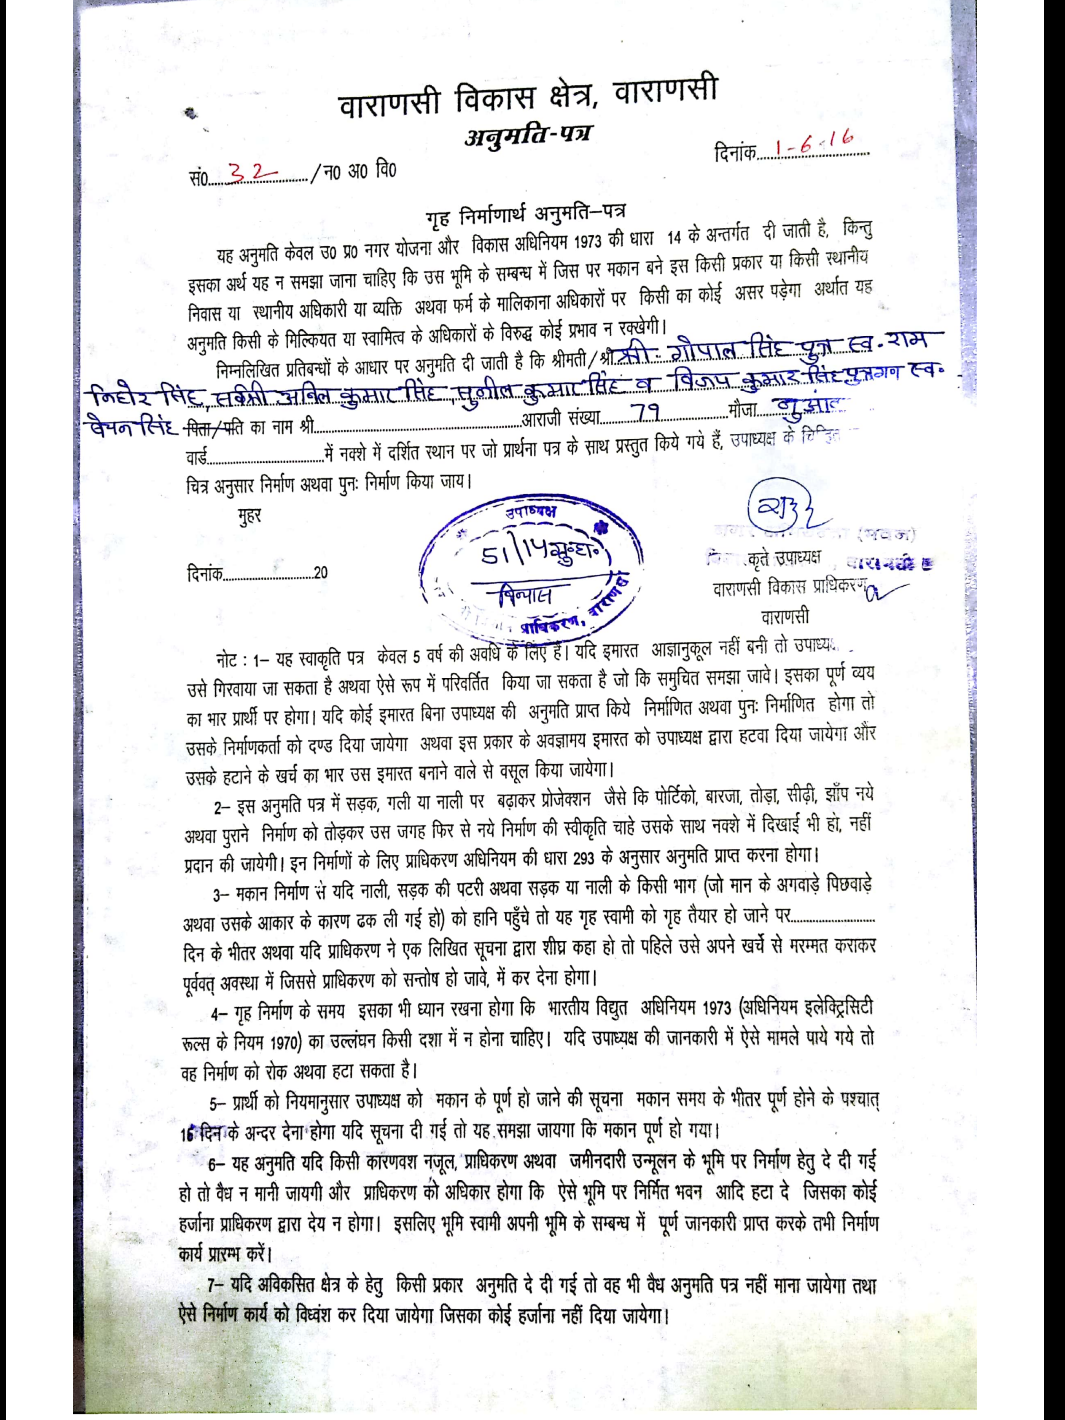 वाराणसी विकास क्षेत्र, वाराणसी
अनुमति-पत्र
सं० 32 /न० अ० वि०
दिनांक 1-6-16
गृह निर्माणार्थ अनुमति–पत्र
यह अनुमति केवल उ० प्र० नगर योजना और विकास अधिनियम 1973 की धारा 14 के अन्तर्गत दी जाती है, किन्तु
इसका अर्थ यह न समझा जाना चाहिए कि उस भूमि के सम्बन्ध में जिस पर मकान बने इस किसी प्रकार या किसी स्थानीय
निवास या स्थानीय अधिकारी या व्यक्ति अथवा फर्म के मालिकाना अधिकारों पर किसी का कोई असर पड़ेगा अर्थात यह
अनुमति किसी के मिल्कियत या स्वामित्व के अधिकारों के विरुद्ध कोई प्रभाव न रक्खेगी।
निम्नलिखित प्रतिबन्धों के आधार पर अनुमति दी जाती है कि श्रीमती/श्री श्री- गोपाल सिंह पुत्र स्व. राम
निहोर सिंह, सर्वश्री अनिल कुमार सिंह, सुनील कुमार सिंह व विजय कुमार सिंह पुत्रगन स्व.
सिंह पिता/पति का नाम श्री आराजी संख्या 79 मौजा
वार्ड में नक्शे में दर्शित स्थान पर जो प्रार्थना पत्र के साथ प्रस्तुत किये गये हैं, उपाध्यक्ष के चिन्हित
चित्र अनुसार निर्माण अथवा पुनः निर्माण किया जाय।
मुहर
उपाध्यक्ष
51/14
विन्यास
प्राधिकरण, वाराणसी
दिनांक 20
कृते उपाध्यक्ष
वाराणसी विकास प्राधिकरण
वाराणसी
नोट : 1– यह स्वाकृति पत्र केवल 5 वर्ष की अवधि के लिए है। यदि इमारत आज्ञानुकूल नहीं बनी तो उपाध्यक्ष
उसे गिरवाया जा सकता है अथवा ऐसे रूप में परिवर्तित किया जा सकता है जो कि समुचित समझा जावे। इसका पूर्ण व्यय
का भार प्रार्थी पर होगा। यदि कोई इमारत बिना उपाध्यक्ष की अनुमति प्राप्त किये निर्माणित अथवा पुनः निर्माणित होगा तो
उसके निर्माणकर्ता को दण्ड दिया जायेगा अथवा इस प्रकार के अवज्ञामय इमारत को उपाध्यक्ष द्वारा हटवा दिया जायेगा और
उसके हटाने के खर्च का भार उस इमारत बनाने वाले से वसूल किया जायेगा।
2– इस अनुमति पत्र में सड़क, गली या नाली पर बढ़ाकर प्रोजेक्शन जैसे कि पोर्टिको, बारजा, तोड़ा, सीढ़ी, झाँप नये
अथवा पुराने निर्माण को तोड़कर उस जगह फिर से नये निर्माण की स्वीकृति चाहे उसके साथ नक्शे में दिखाई भी हो, नहीं
प्रदान की जायेगी। इन निर्माणों के लिए प्राधिकरण अधिनियम की धारा 293 के अनुसार अनुमति प्राप्त करना होगा।
3– मकान निर्माण से यदि नाली, सड़क की पटरी अथवा सड़क या नाली के किसी भाग (जो मान के अगवाड़े पिछवाड़े
अथवा उसके आकार के कारण ढक ली गई हो) को हानि पहुँचे तो यह गृह स्वामी को गृह तैयार हो जाने पर
दिन के भीतर अथवा यदि प्राधिकरण ने एक लिखित सूचना द्वारा शीघ्र कहा हो तो पहिले उसे अपने खर्चे से मरम्मत कराकर
पूर्ववत् अवस्था में जिससे प्राधिकरण को सन्तोष हो जावे, में कर देना होगा।
4– गृह निर्माण के समय इसका भी ध्यान रखना होगा कि भारतीय विद्युत अधिनियम 1973 (अधिनियम इलेक्ट्रिसिटी
रूल्स के नियम 1970) का उल्लंघन किसी दशा में न होना चाहिए। यदि उपाध्यक्ष की जानकारी में ऐसे मामले पाये गये तो
वह निर्माण को रोक अथवा हटा सकता है।
5– प्रार्थी को नियमानुसार उपाध्यक्ष को मकान के पूर्ण हो जाने की सूचना मकान समय के भीतर पूर्ण होने के पश्चात्
15 दिन के अन्दर देना होगा यदि सूचना दी गई तो यह समझा जायगा कि मकान पूर्ण हो गया।
6– यह अनुमति यदि किसी कारणवश नजूल, प्राधिकरण अथवा जमीनदारी उन्मूलन के भूमि पर निर्माण हेतु दे दी गई
हो तो वैध न मानी जायगी और प्राधिकरण को अधिकार होगा कि ऐसे भूमि पर निर्मित भवन आदि हटा दे जिसका कोई
हर्जाना प्राधिकरण द्वारा देय न होगा। इसलिए भूमि स्वामी अपनी भूमि के सम्बन्ध में पूर्ण जानकारी प्राप्त करके तभी निर्माण
कार्य प्रारम्भ करें।
7– यदि अविकसित क्षेत्र के हेतु किसी प्रकार अनुमति दे दी गई तो वह भी वैध अनुमति पत्र नहीं माना जायेगा तथा
ऐसे निर्माण कार्य को विध्वंश कर दिया जायेगा जिसका कोई हर्जाना नहीं दिया जायेगा।